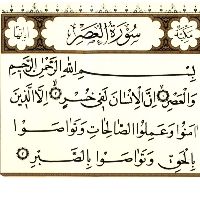 سُورَةُ الْعَصْرِ
بِسْمِ اللَّهِ الرَّحْمَٰنِ الرَّحِيمِ
وَالْعَصْرِ ١ إِنَّ الْإِنْسَانَ لَفِي خُسْرٍ ٢ إِلَّا الَّذِينَ
آمَنُوا وَعَمِلُوا الصَّالِحَاتِ وَتَوَاصَوْا
بِالْحَقِّ وَتَوَاصَوْا بِالصَّبْرِ ٣